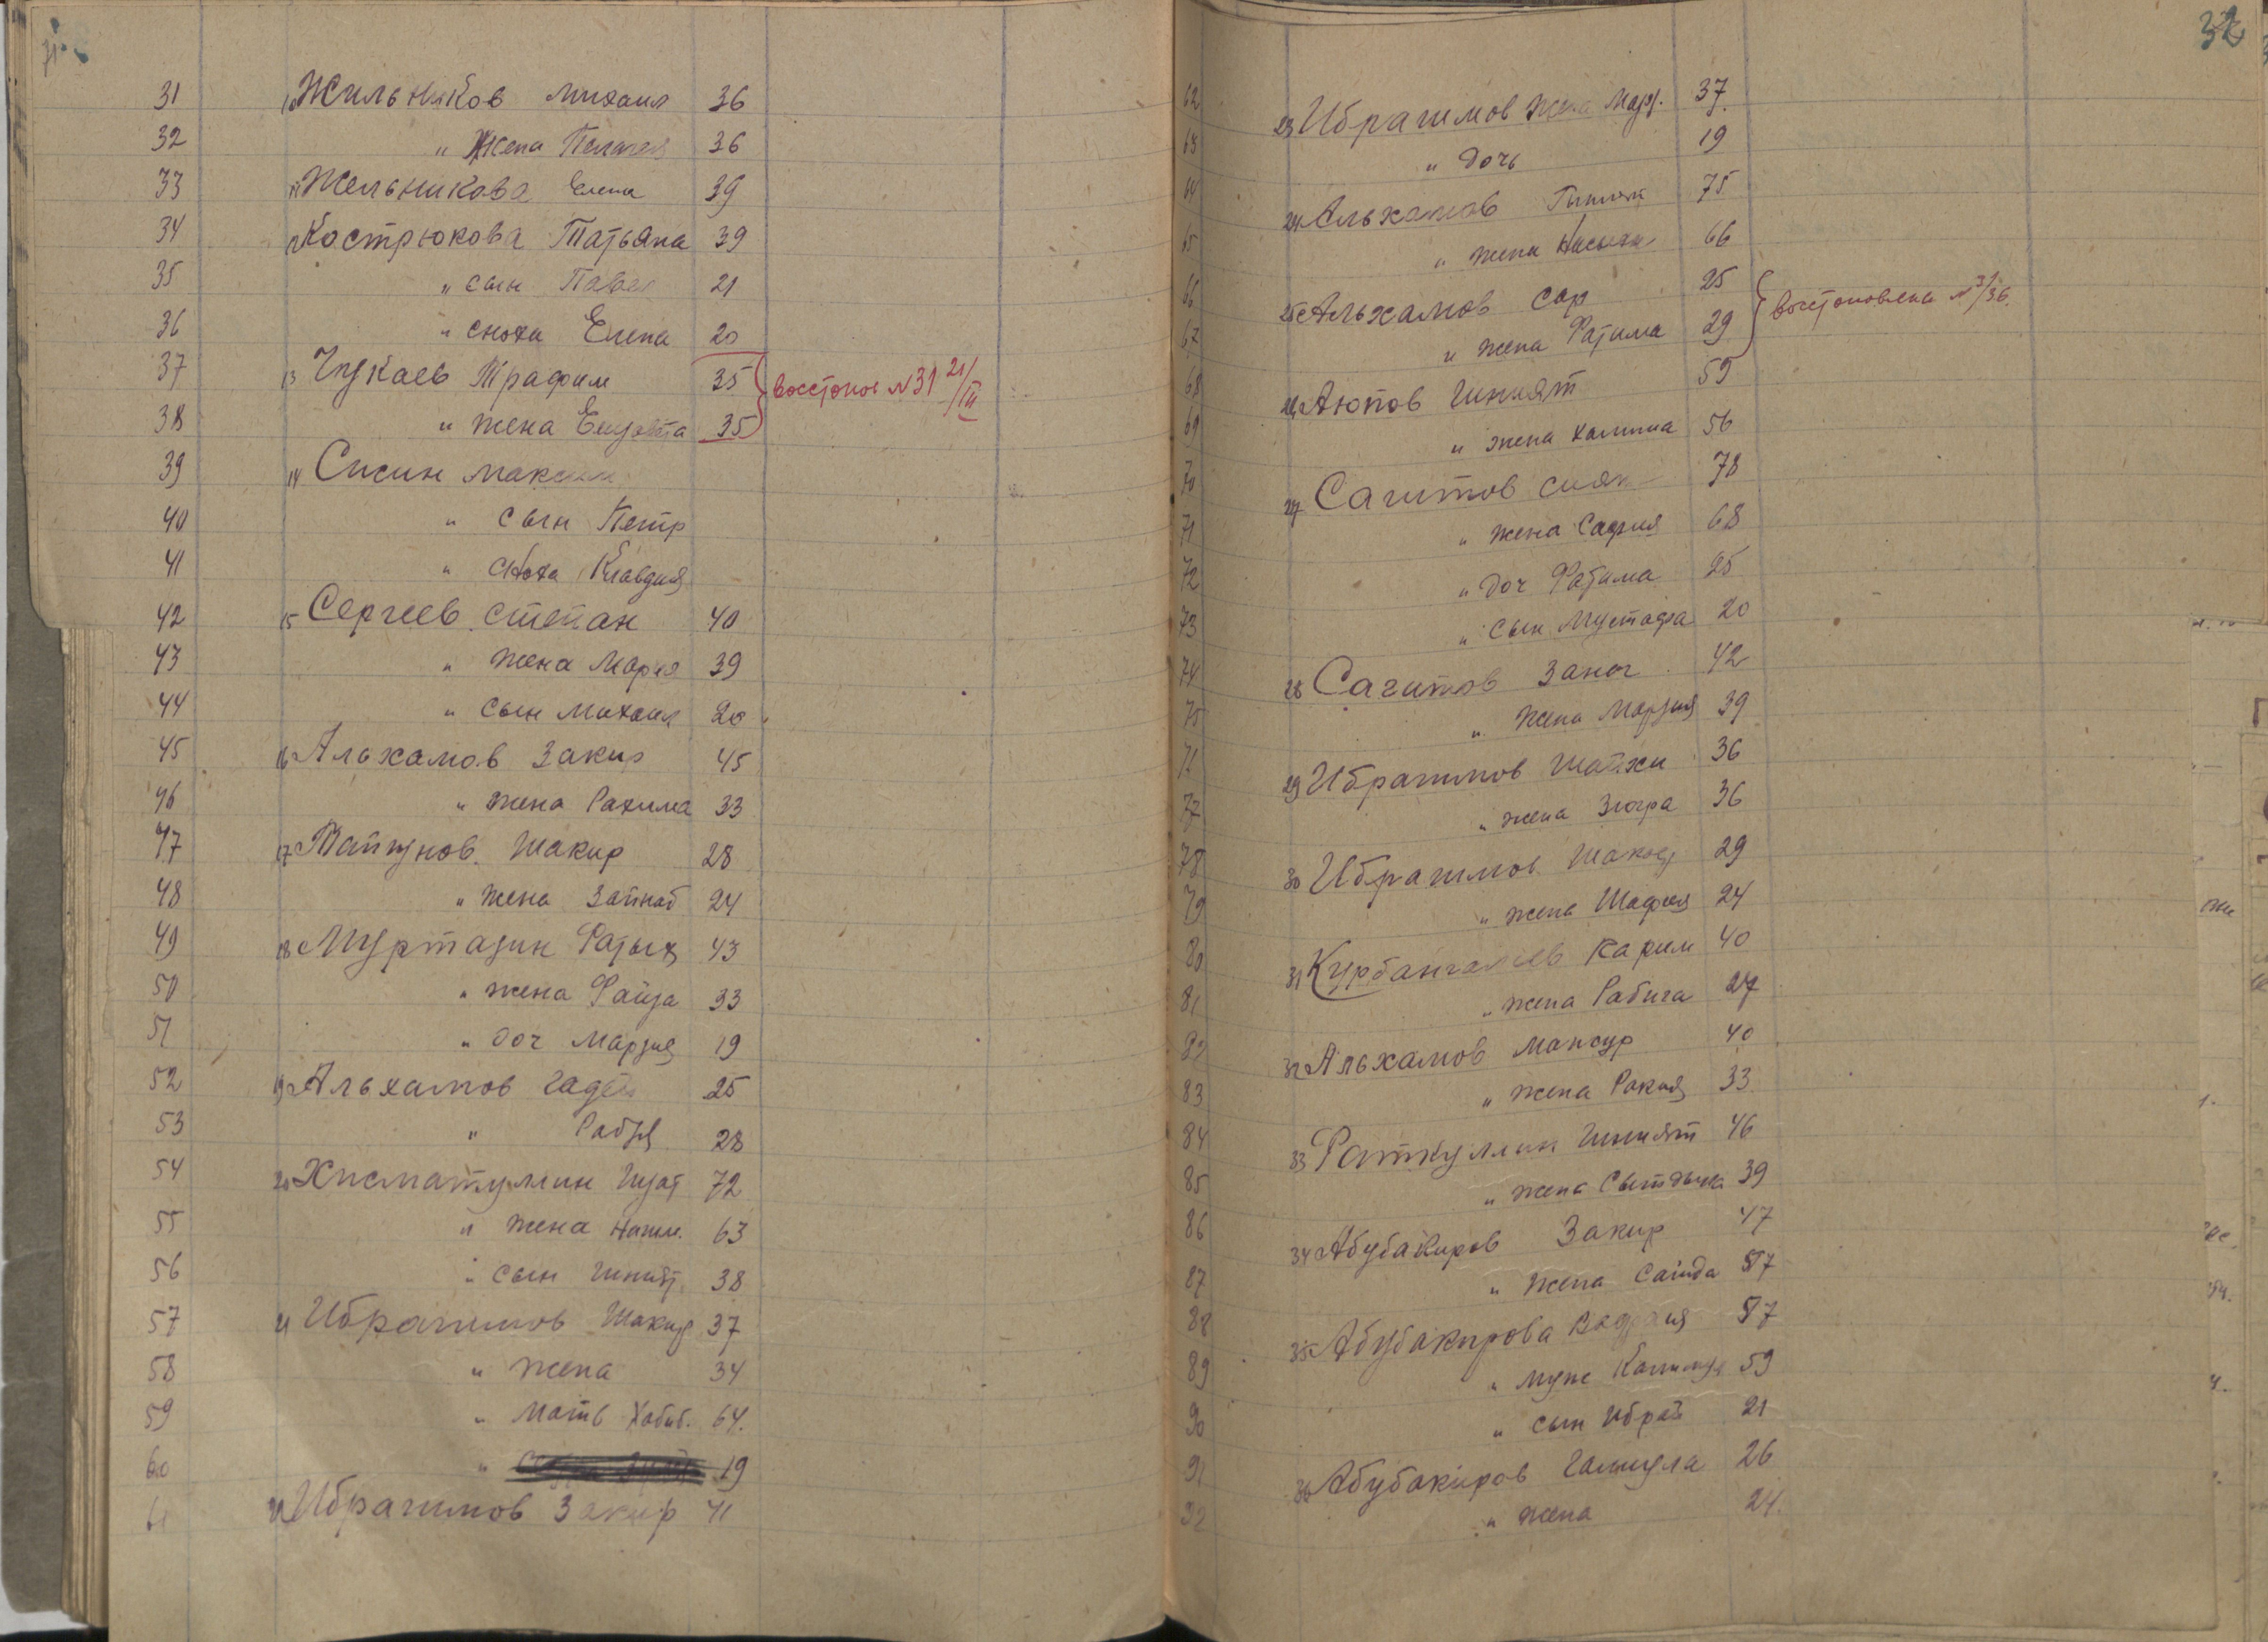 32
31 10 Жильников Михаил 36
32 " Жена Пелагея 36
33 11 Жельникова Елена 39
34 12 Кострюкова Татьяна 39
35 " сын Павел 21
36 " сноха Елена 20
37 13 Трафим 35
38 " жена 35
востонов №31 21/III
39 14 Сисин Максим
40 " сын Петр
41 " сноха Клавдия
42 15 Сергеев Степан 40
43 " жена Мария 39
44 " сын Михаил 20
45 16 Альхамов Закир 45
46 " жена Рахима 33
47 17 Шакир 28
48 " жена Зайнаб 24
49 18 Муртазин Фатых 43
50 " жена Файза 33
51 " доч Марзия 19
52 19 Альхамов 25
53 " 28
54 20 Хисматуллин 72
55 " жена 63
56 " сын 38
57 21 Ибрагимов Шакир 37
58 " жена 34
59 " Мать Хабиб. 64.
60 " 19
61 22 Ибрагимов Закир 41
62 23 Ибрагимов жена 37
63 " дочь 19
64 24 Альхамов 75
65 " жена 66
66 25 Альхамов 25
67 " жена Фатима 29
востоновлена №31/36
68 26 Аюпов Гиният 59
69 " жена Халима 56
70 27 Сагитов 78
71 " жена Сафия 68
72 " доч Фатима 25
73 " сын Мустафа 20
74 28 Сагитов 42
75 " жена Марзия 39
76 29 Ибрагимов Шайхи 36
77 " жена Зюгра 36
78 30 Ибрагимов 29
79 " жена Шафия 24
80 31 Курбангалиев Карим 40
81 " жена Рабига 27
82 32 Альхамов Мансур 40
83 " жена Ракия 33
84 33 Гиният 46
85 " жена 39
86 34 Абубакиров Закир 47
87 " жена Саида 57
88 35 Абубакирова 57
89 " муж 59
90 " сын Ибрай 21
91 36 Абубакиров 26
92 " жена 24.